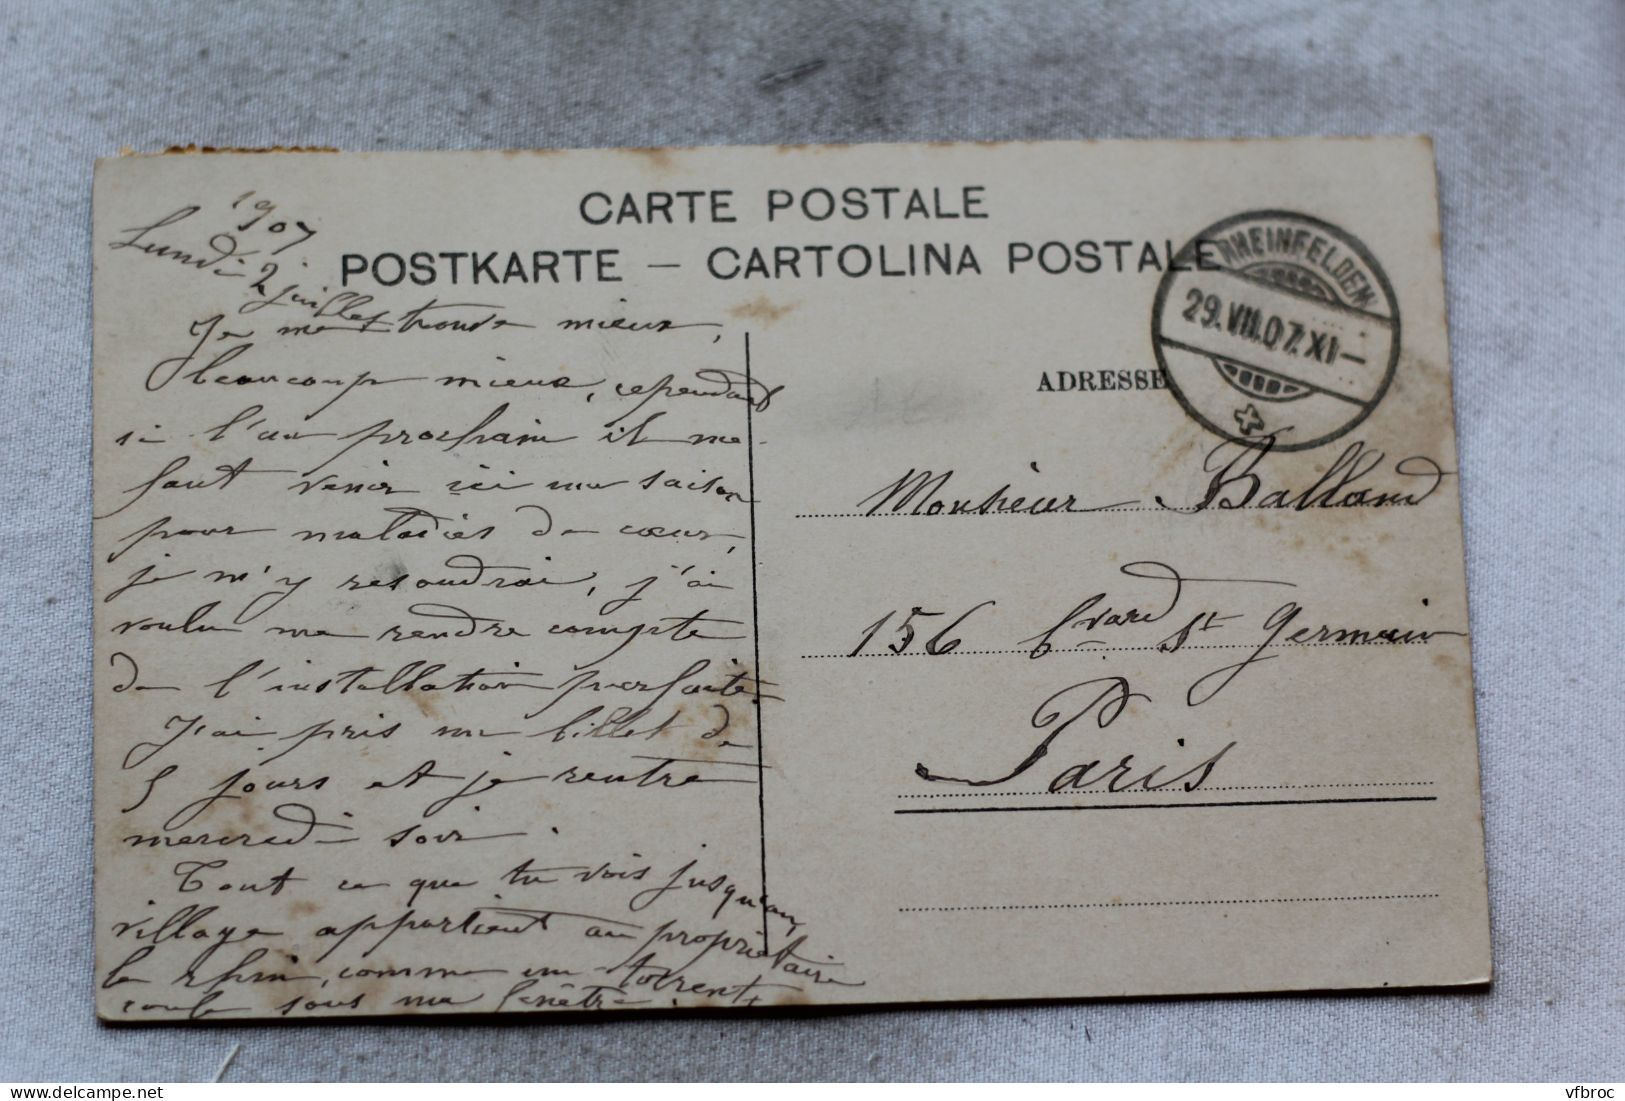 CARTE POSTALE
POSTKARTE – CARTOLINA POSTALE
RHEINFELDEN
29.VII.07.XI–
ADRESSE
1907
Lundi 2 juillet
Je me trouve mieux,
beaucoup mieux, cependant
si l'an prochain il me
faut venir ici une saison
pour maladies de cœur,
je m'y resoudrai, j'ai
voulu me rendre compte
de l'installation parfaite.
J'ai pris un billet de
5 jours et je rentre
mercredi soir.
Tout ce que tu vois jusqu'au
village appartient au propriétaire
le rhin, comme un torrent,
coule sous ma fenêtre.
Monsieur Balland
156 bvard St Germain
Paris
vfbroc